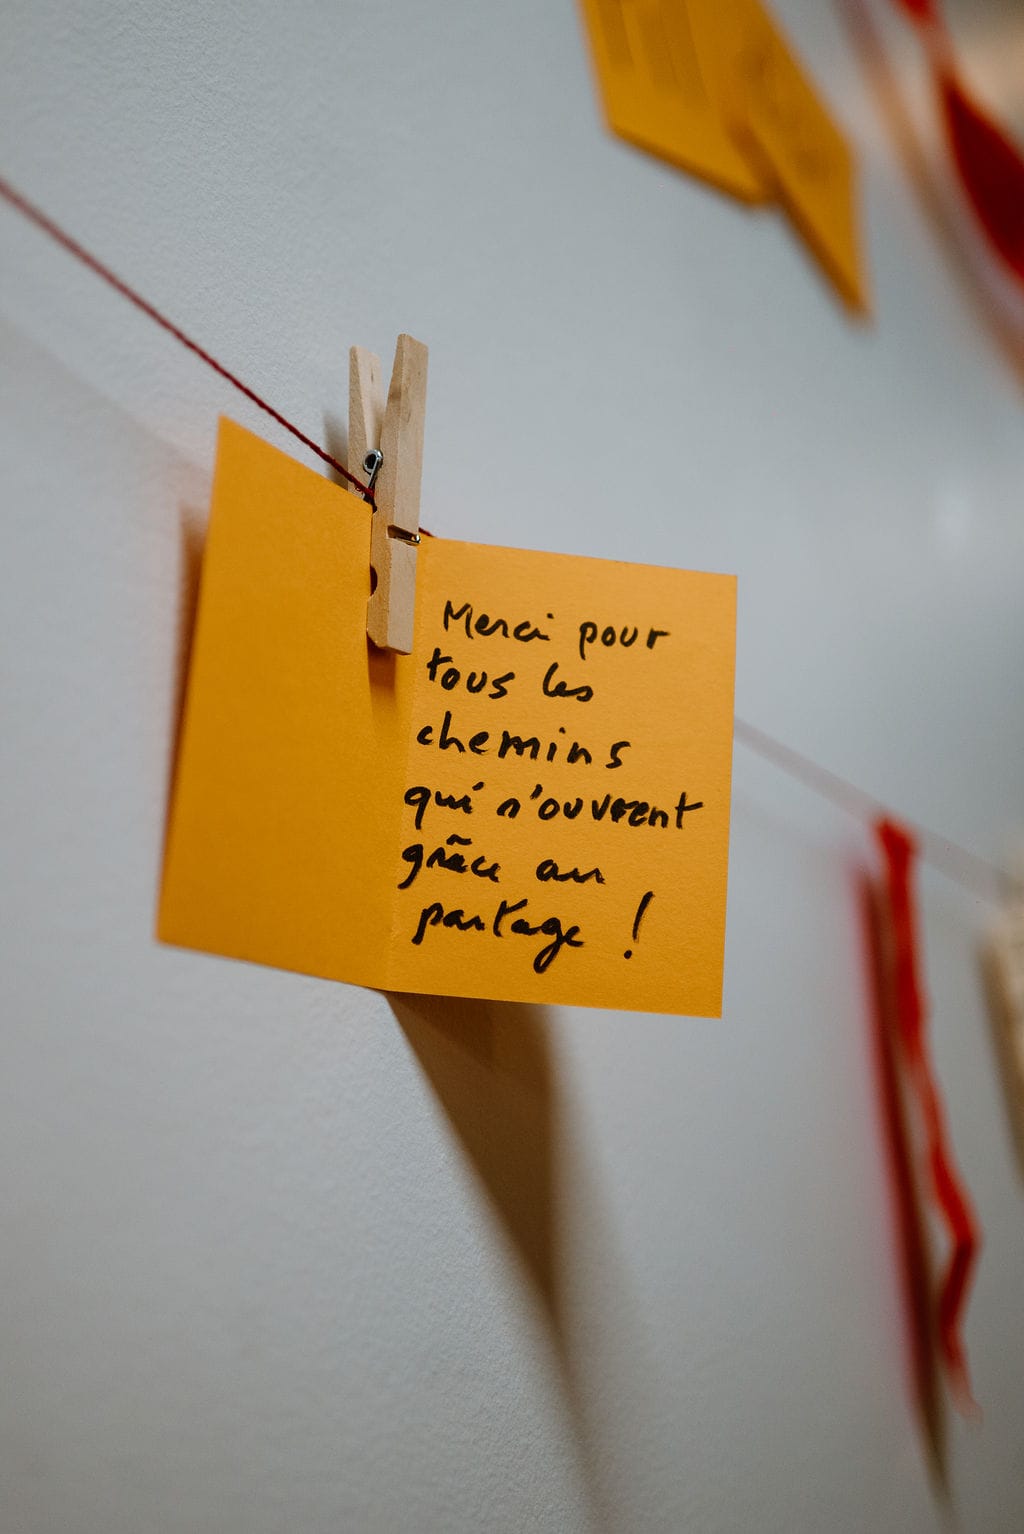 Merci pour
tous les
chemins
qui s'ouvrent
grâce au
partage !